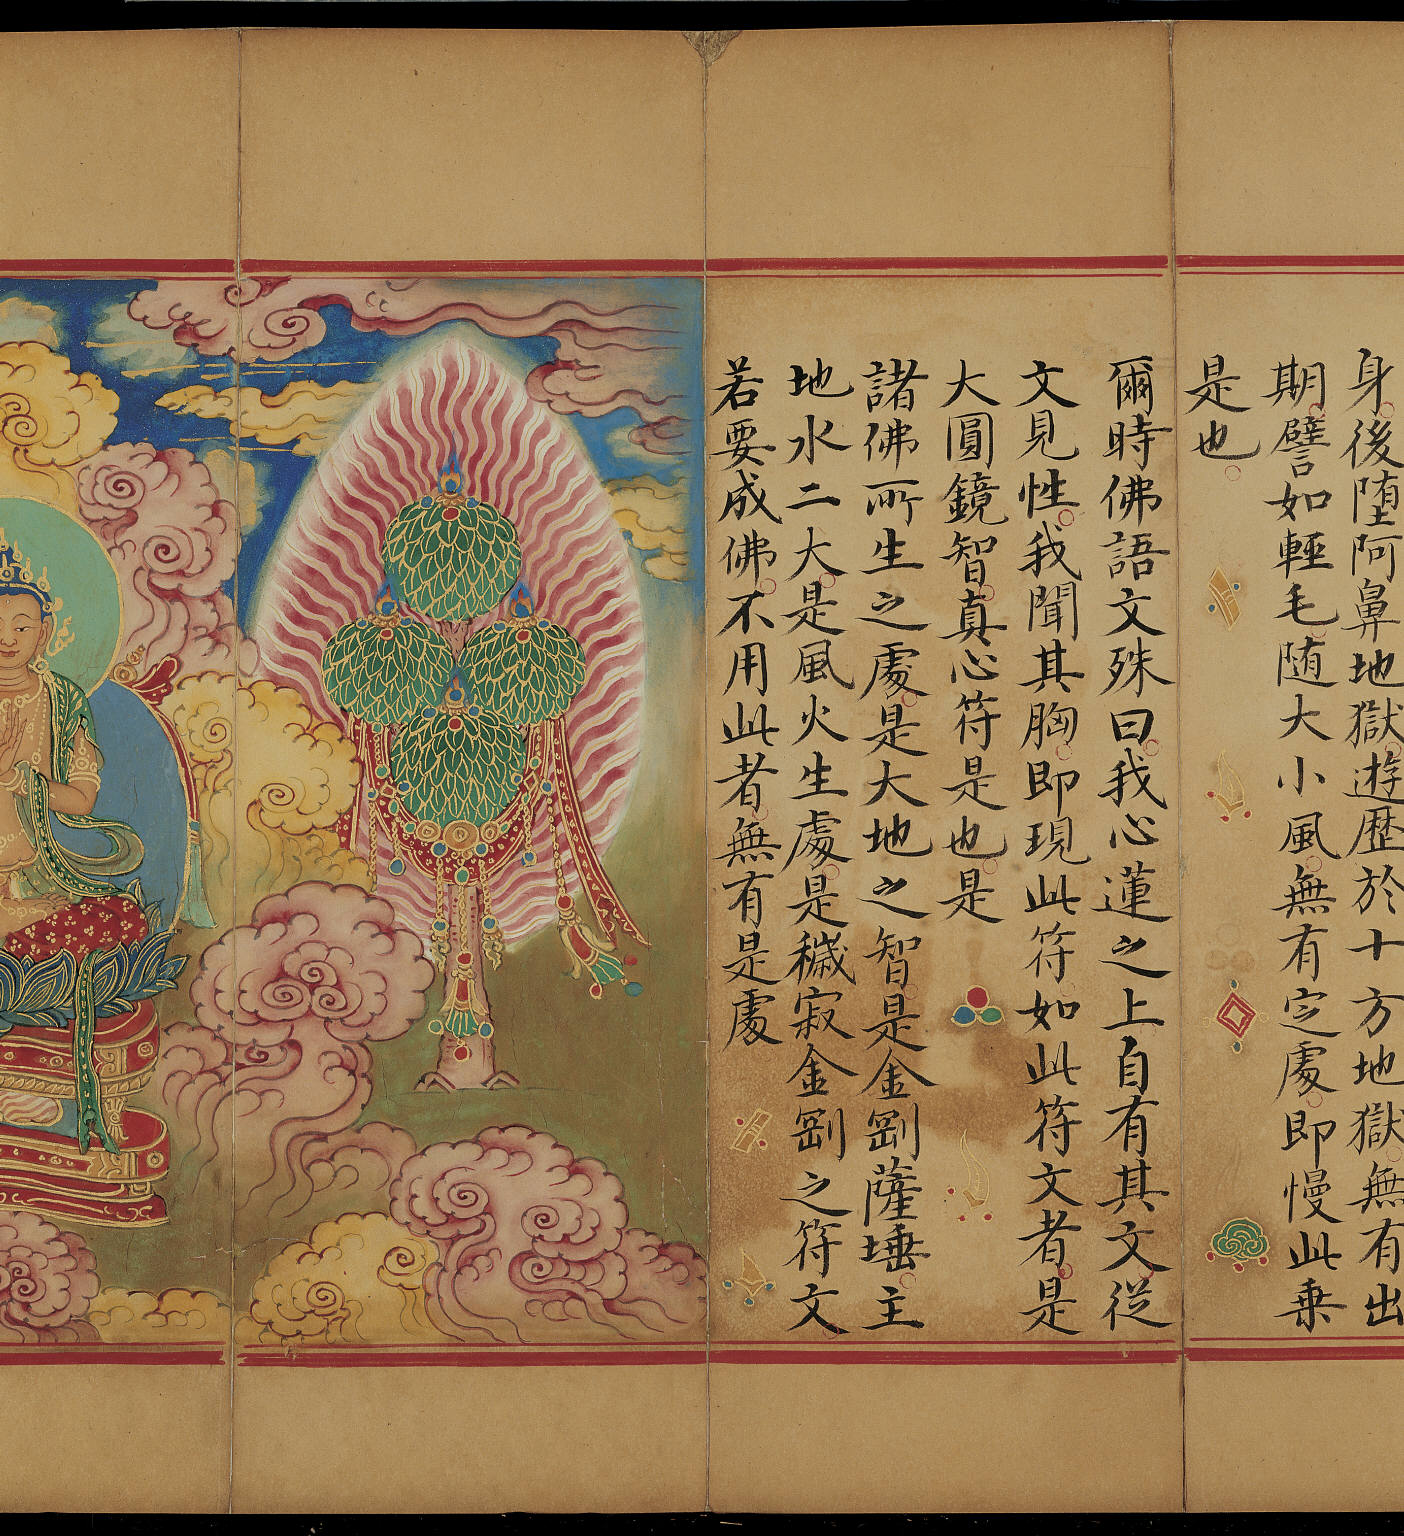 身後墮阿鼻地獄遊歷於十方地獄無有出
期譬如輕毛随大小風無有定處即慢此乗
是也
爾時佛語文殊曰我心蓮之上自有其文從
文見性我聞其胸即現此符如此符文者是
大圓鏡智真心符是也是
諸佛所生之處是大地之智是金剛薩埵主
地水二大是風火生處是穢寂金剛之符文
若要成佛不用此者無有是處